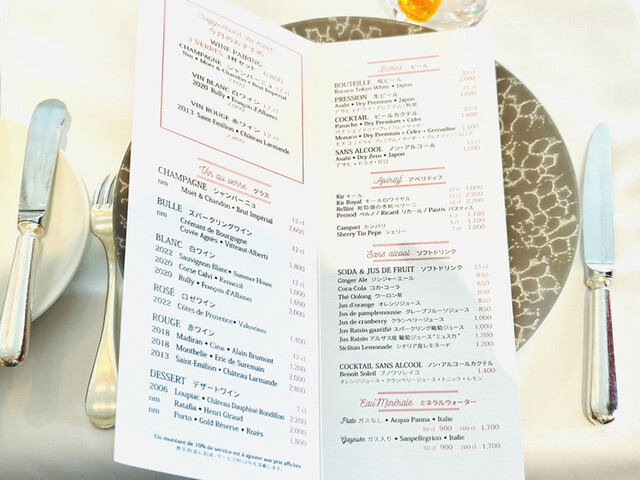 Suggestions du mois
今月のおすすめ
WINE PAIRING
3 VERRES 3杯セット 6,800
CHAMPAGNE シャンパーニュ 12 cl
Nm / Moët & Chandon • Brut Impérial
2,600
VIN BLANC 白ワイン 12 cl
2020 Rully • François d'Allaines
2,000
VIN ROUGE 赤ワイン 12 cl
2013 Saint-Emilion • Château Larmande
2,800
Vin au verre グラス
CHAMPAGNE シャンパーニュ 12 cl
nm Moët & Chandon • Brut Impérial 2,600
BULLE スパークリングワイン
nm Crémant de Bourgogne
Cuvée Agnès • Vitteaut-Alberti 1,800
BLANC 白ワイン 12 cl
2022 Sauvignon Blanc • Summer House 1,000
2020 Corse Calvi • Renuccil 1,600
2020 Rully • François d'Allaines 2,000
ROSÉ ロゼワイン 12 cl
2022 Côtes de Provence • Valentines 1,400
ROUGE 赤ワイン 12 cl
2018 Madiran • Cirus • Alain Brumont 1,200
2018 Monthelie • Eric de Suremain 2,200
2013 Saint-Emilion • Château Larmande 2,800
DESSERT デザートワイン 7 cl
2006 Loupiac • Château Dauphiné-Rondillon 2,200
nm Ratafia • Henri Giraud 2,000
nm Porto • Gold Réserve • Rozès 1,800
Un montant de 10% de service est à ajouter aux prix affichés
表示料金に別途、サービス料10%を頂戴します。
Bières ビール
BOUTEILLE 瓶ビール 33 cl
Rococo Tokyo White • Japon 2,000
PRESSION 生ビール 25 cl
Asahi • Dry Premium • Japon
アサヒ • ドライ・プレミアム • 熟撰
COCKTAIL ビールカクテル 25 cl
Panache • Dry Premium • Cider
Monaco • Dry Premium • Cider • Grenadine 1,100
SANS ALCOOL ノン・アルコール
Asahi • Dry Zero • Japon
アサヒ • ドライ・ゼロ
Apéritif アペリティフ
Kir キール 12 cl
Kir Royal キールロワイヤル 12 cl
Bellini 葡萄園の赤桃ベリーニ
Pernod ペルノ / Ricard リカール / Pastis パスティス
Campari カンパリ
Sherry Tio Pepe シェリー 1,100
Sans alcool ソフトドリンク
SODA & JUS DE FRUIT ソフトドリンク 25 cl
Ginger Ale ジンジャーエール 850
Coca Cola コカ・コーラ 850
Thé Oolong ウーロン茶 850
Jus d'orange オレンジジュース 850
Jus de pamplemousse グレープフルーツジュース 850
Jus de cranberry クランベリージュース 850
Jus Raisin gazéifié スパークリング葡萄ジュース 1,000
Jus Raisin アルザス産 葡萄ジュース"ミュスカ" 1,200
Sicilian Lemonade シチリア産レモネード 1,200
COCKTAIL SANS ALCOOL ノン・アルコールカクテル
Benoit Soleil ブノワソレイユ 1,400
オレンジジュース • クランベリージュース • トニック • レモン
Eau Minérale ミネラルウォーター
Plate ガスなし • Acqua Panna • Italie
50 cl 900 100 cl 1,700
Gazeuse ガス入り • Sanpellegrino • Italie
50 cl 900 100 cl 1,700